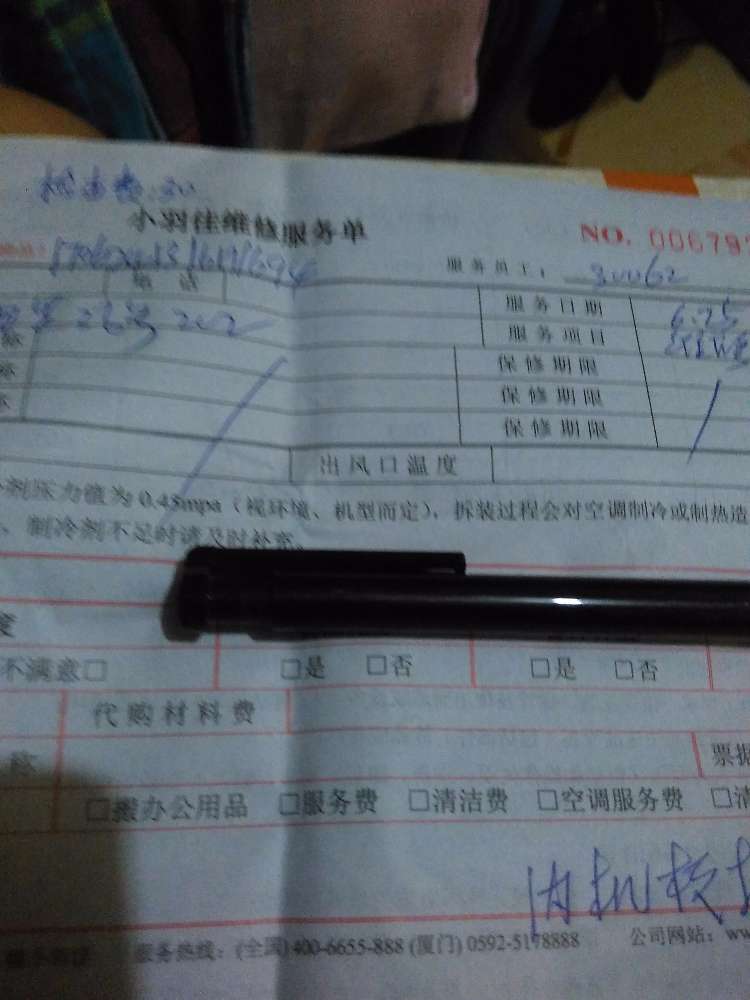 小羽佳维修服务单
NO. 00679
服务员工： 80062
电 话
202
服务日期 6.25
服务项目
保修期限
保修期限
保修期限
出风口温度
剂压力值为 0.45mpa（视环境、机型而定），拆装过程会对空调制冷或制热造
、制冷剂不足时请及时补充。
度
不满意□ □是 □否 □是 □否
代购材料费
称 票据
□搬办公用品 □服务费 □清洁费 □空调服务费 □清
内机
服务热线：(全国)400-6655-888 (厦门) 0592-5178888 公司网站：ww